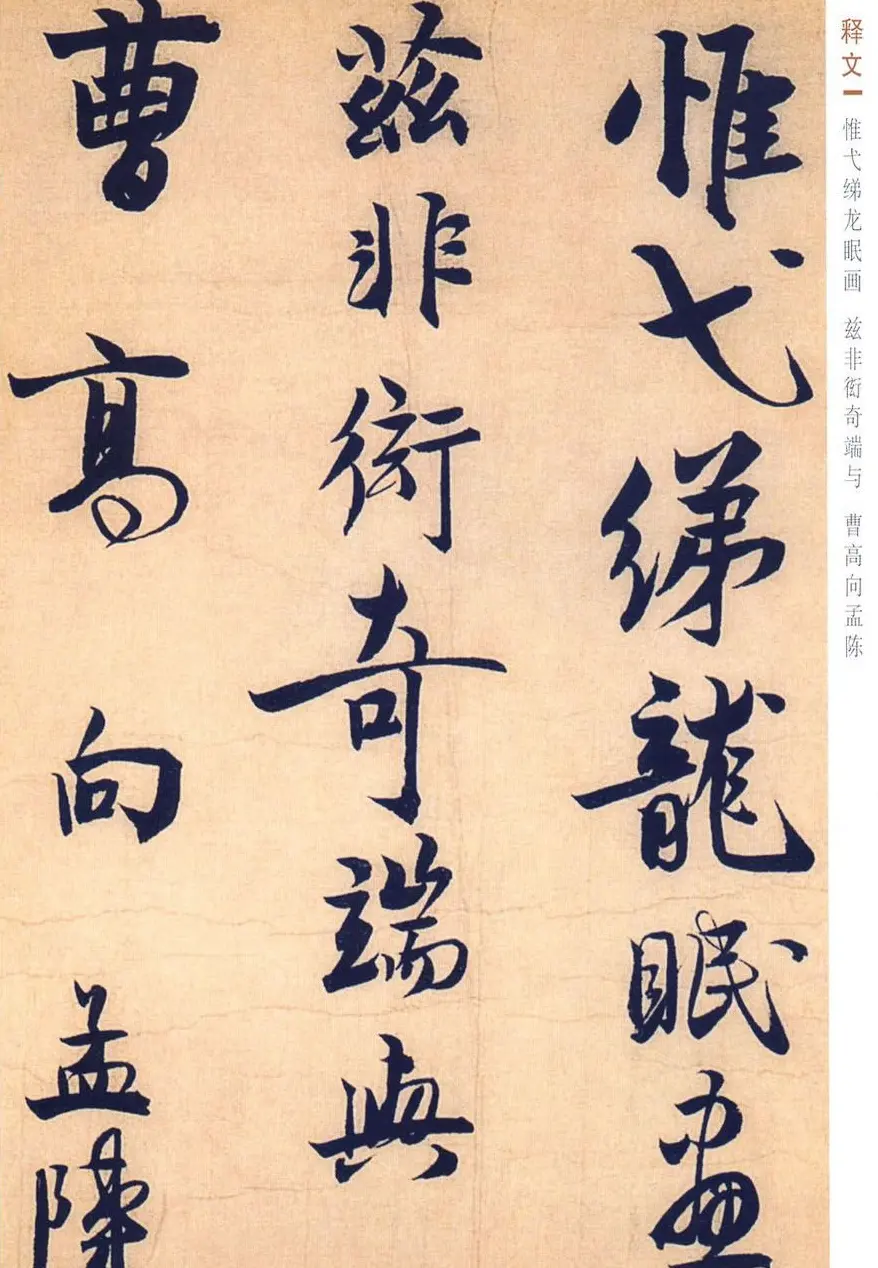 惟弋綈龍眠畫
茲非衒奇端與
曹高向孟陳
释文
惟弋绨龙眠画 兹非衒奇端与 曹高向孟陈